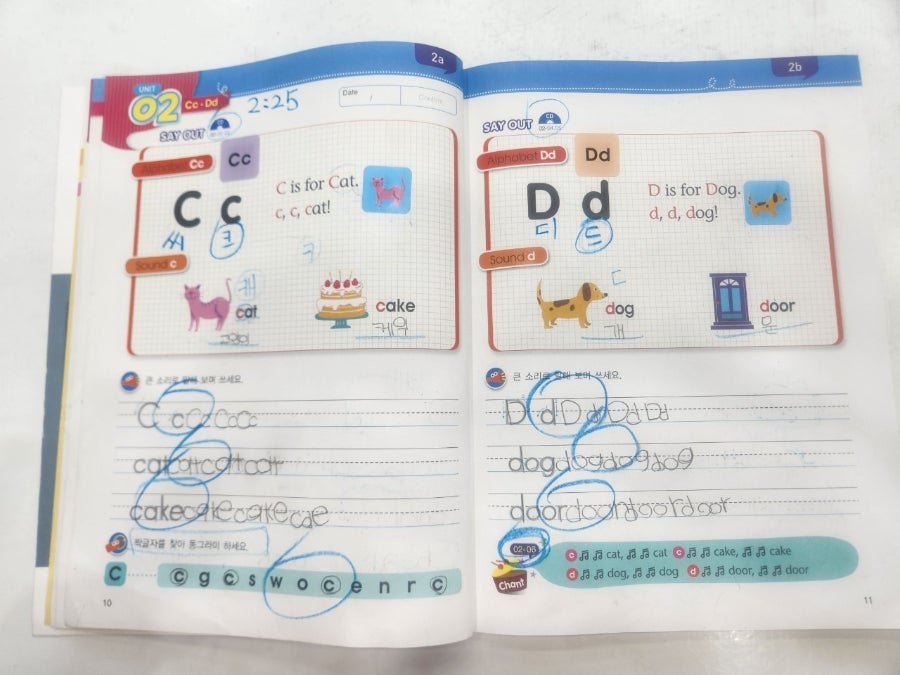 2a
UNIT
02 Cc · Dd
2:25
Date /
SAY OUT
Alphabet Cc
Cc
C c
C is for Cat.
c, c, cat!
씨 크
Sound c
cat
cake
케잌
큰 소리로 말해 보며 쓰세요.
C c C c C c C c
cat cat cat cat
cake cake cake cake
짝글자를 찾아 동그라미 하세요.
C c g c s w o c e n r c
10
2b
SAY OUT
CD
Alphabet Dd
Dd
D d
D is for Dog.
d, d, dog!
디 드
Sound d
ㄷ
dog
door
개
문
큰 소리로 말해 보며 쓰세요.
D d D d D d D d
dog dog dog dog
door door door door
02-06
Chant
c ♫ ♫ cat, ♫ ♫ cat c ♫ ♫ cake, ♫ ♫ cake
d ♫ ♫ dog, ♫ ♫ dog d ♫ ♫ door, ♫ ♫ door
11